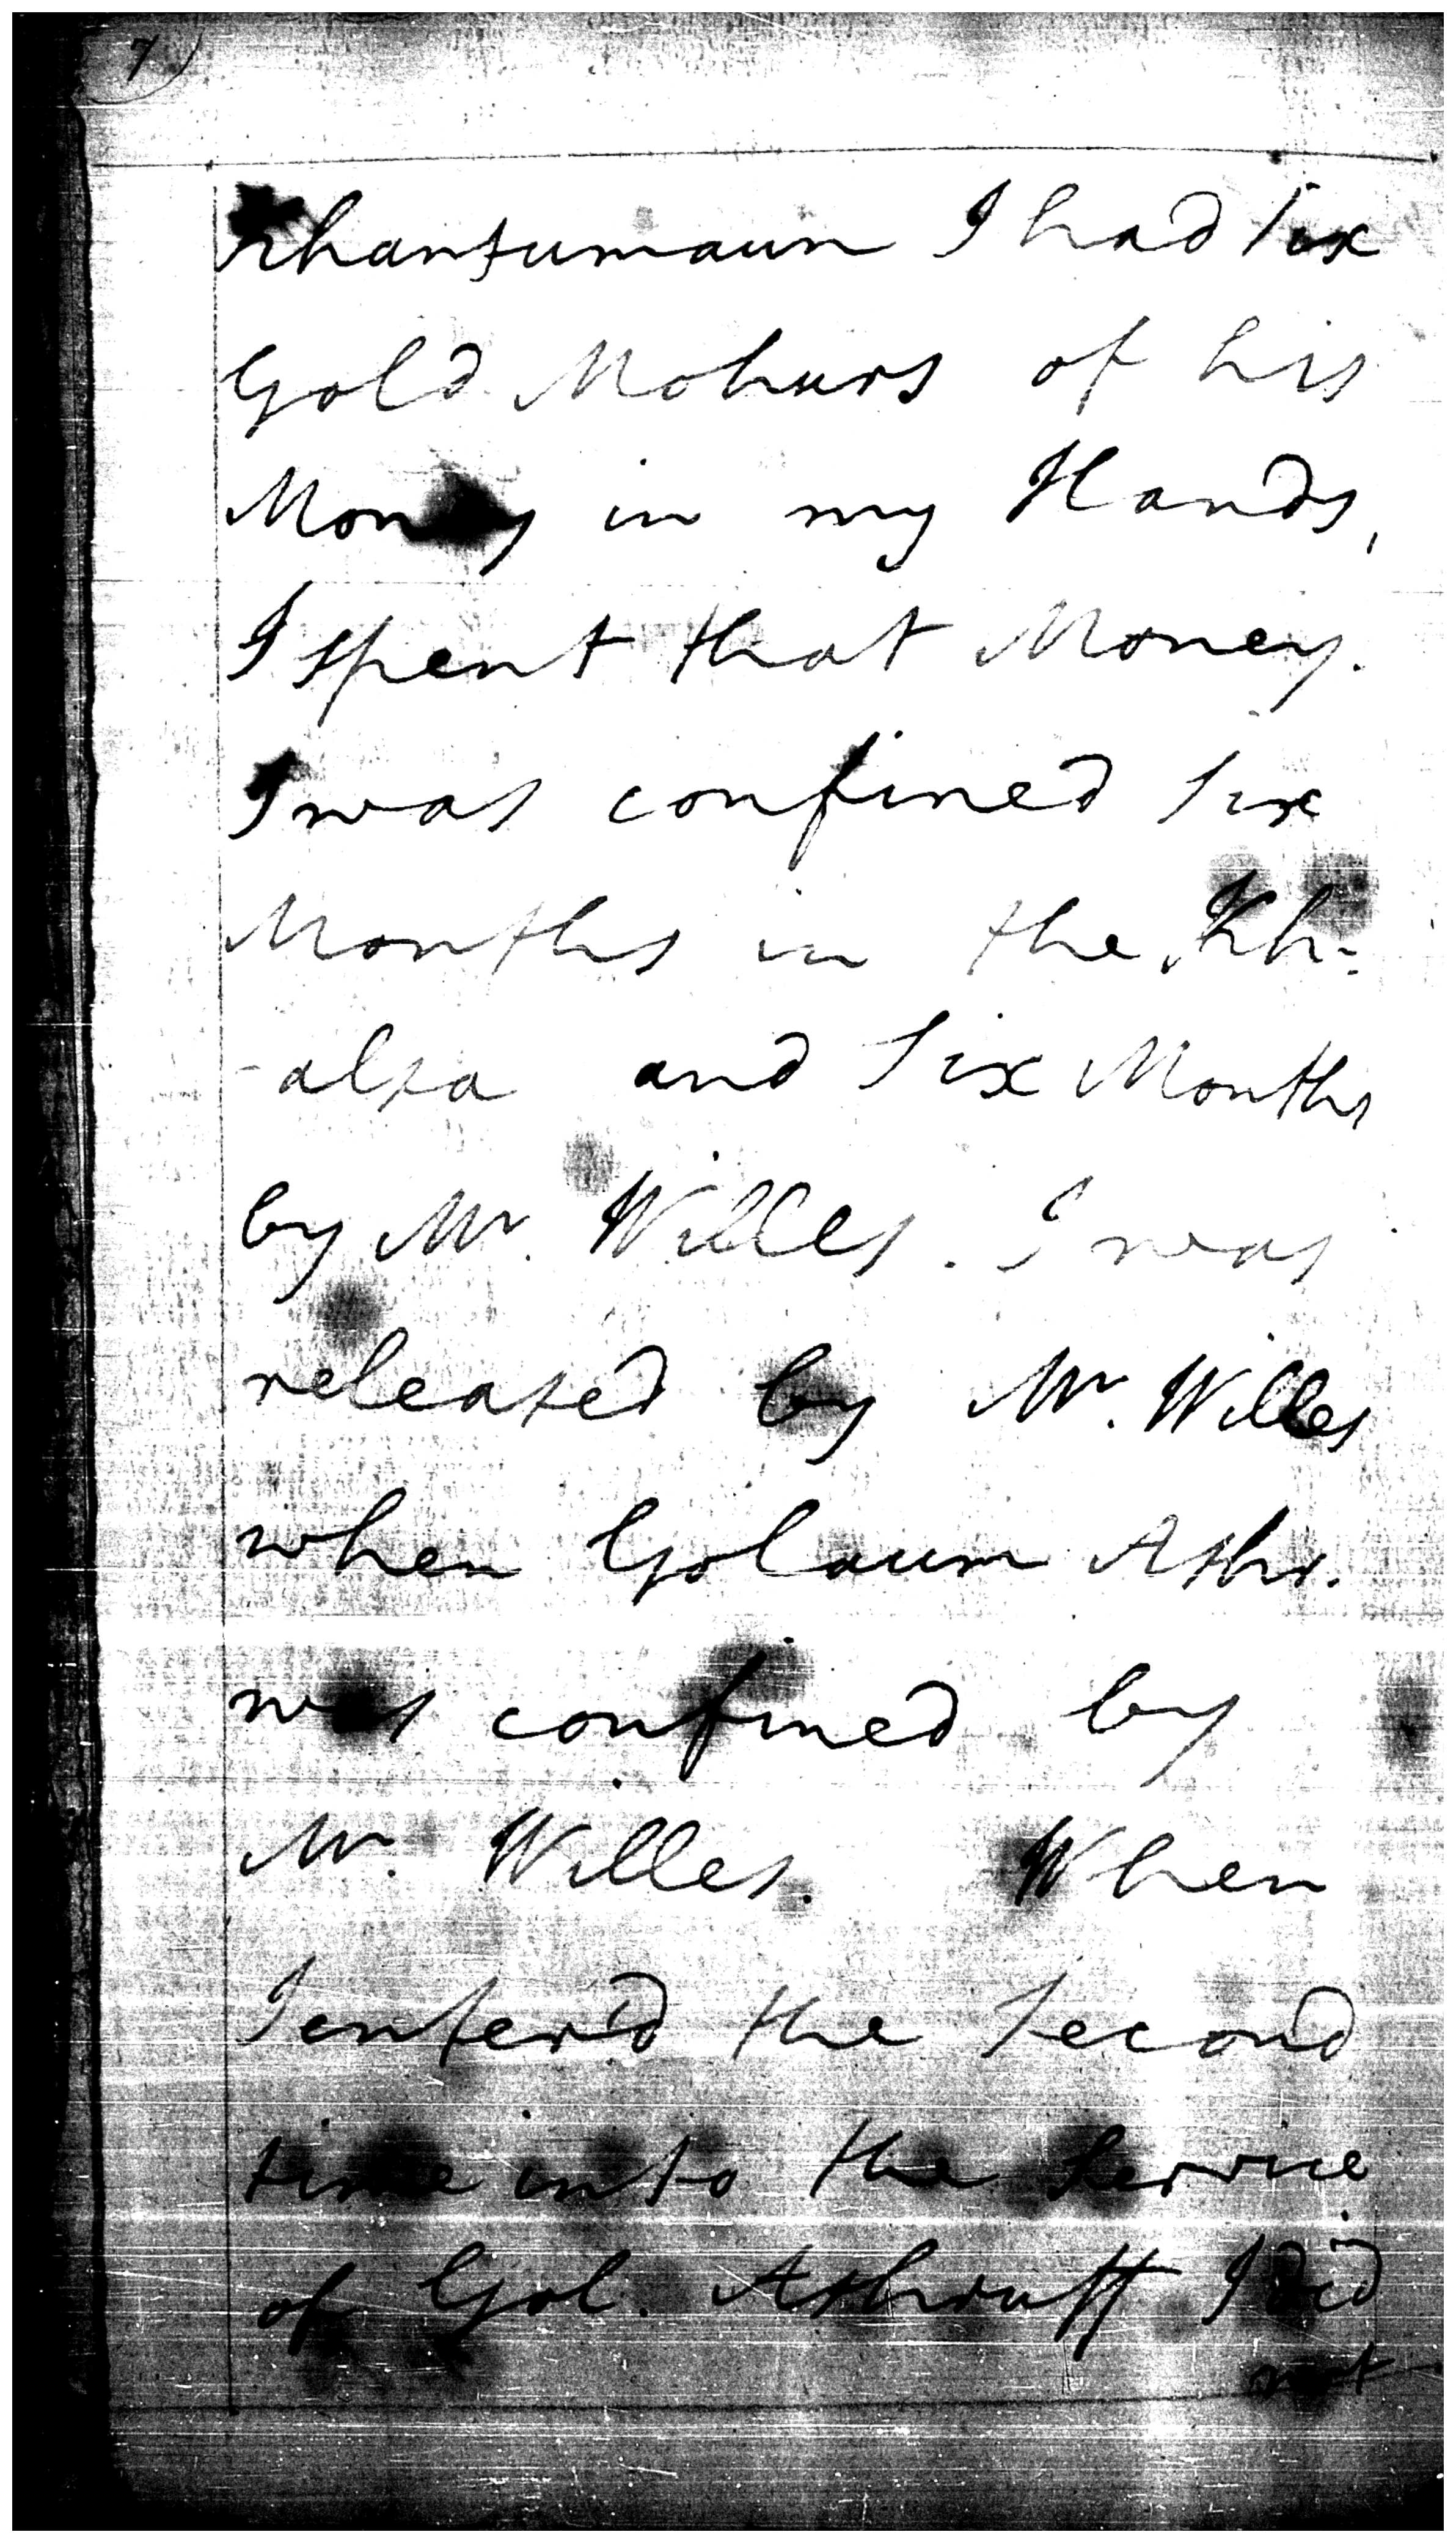 7
khantumaun I had Six
Gold Mohurs of his
Money in my Hands,
I spent that Money.
I was confined Six
Months in the Kh=
-alsa and Six Months
by Mr. Willes. I was
released by Mr. Willes
when Golaum Ashr.
was confined by
Mr. Willes. When
I enter'd the Second
time into the Service
of Gol. Ashruff I did
not